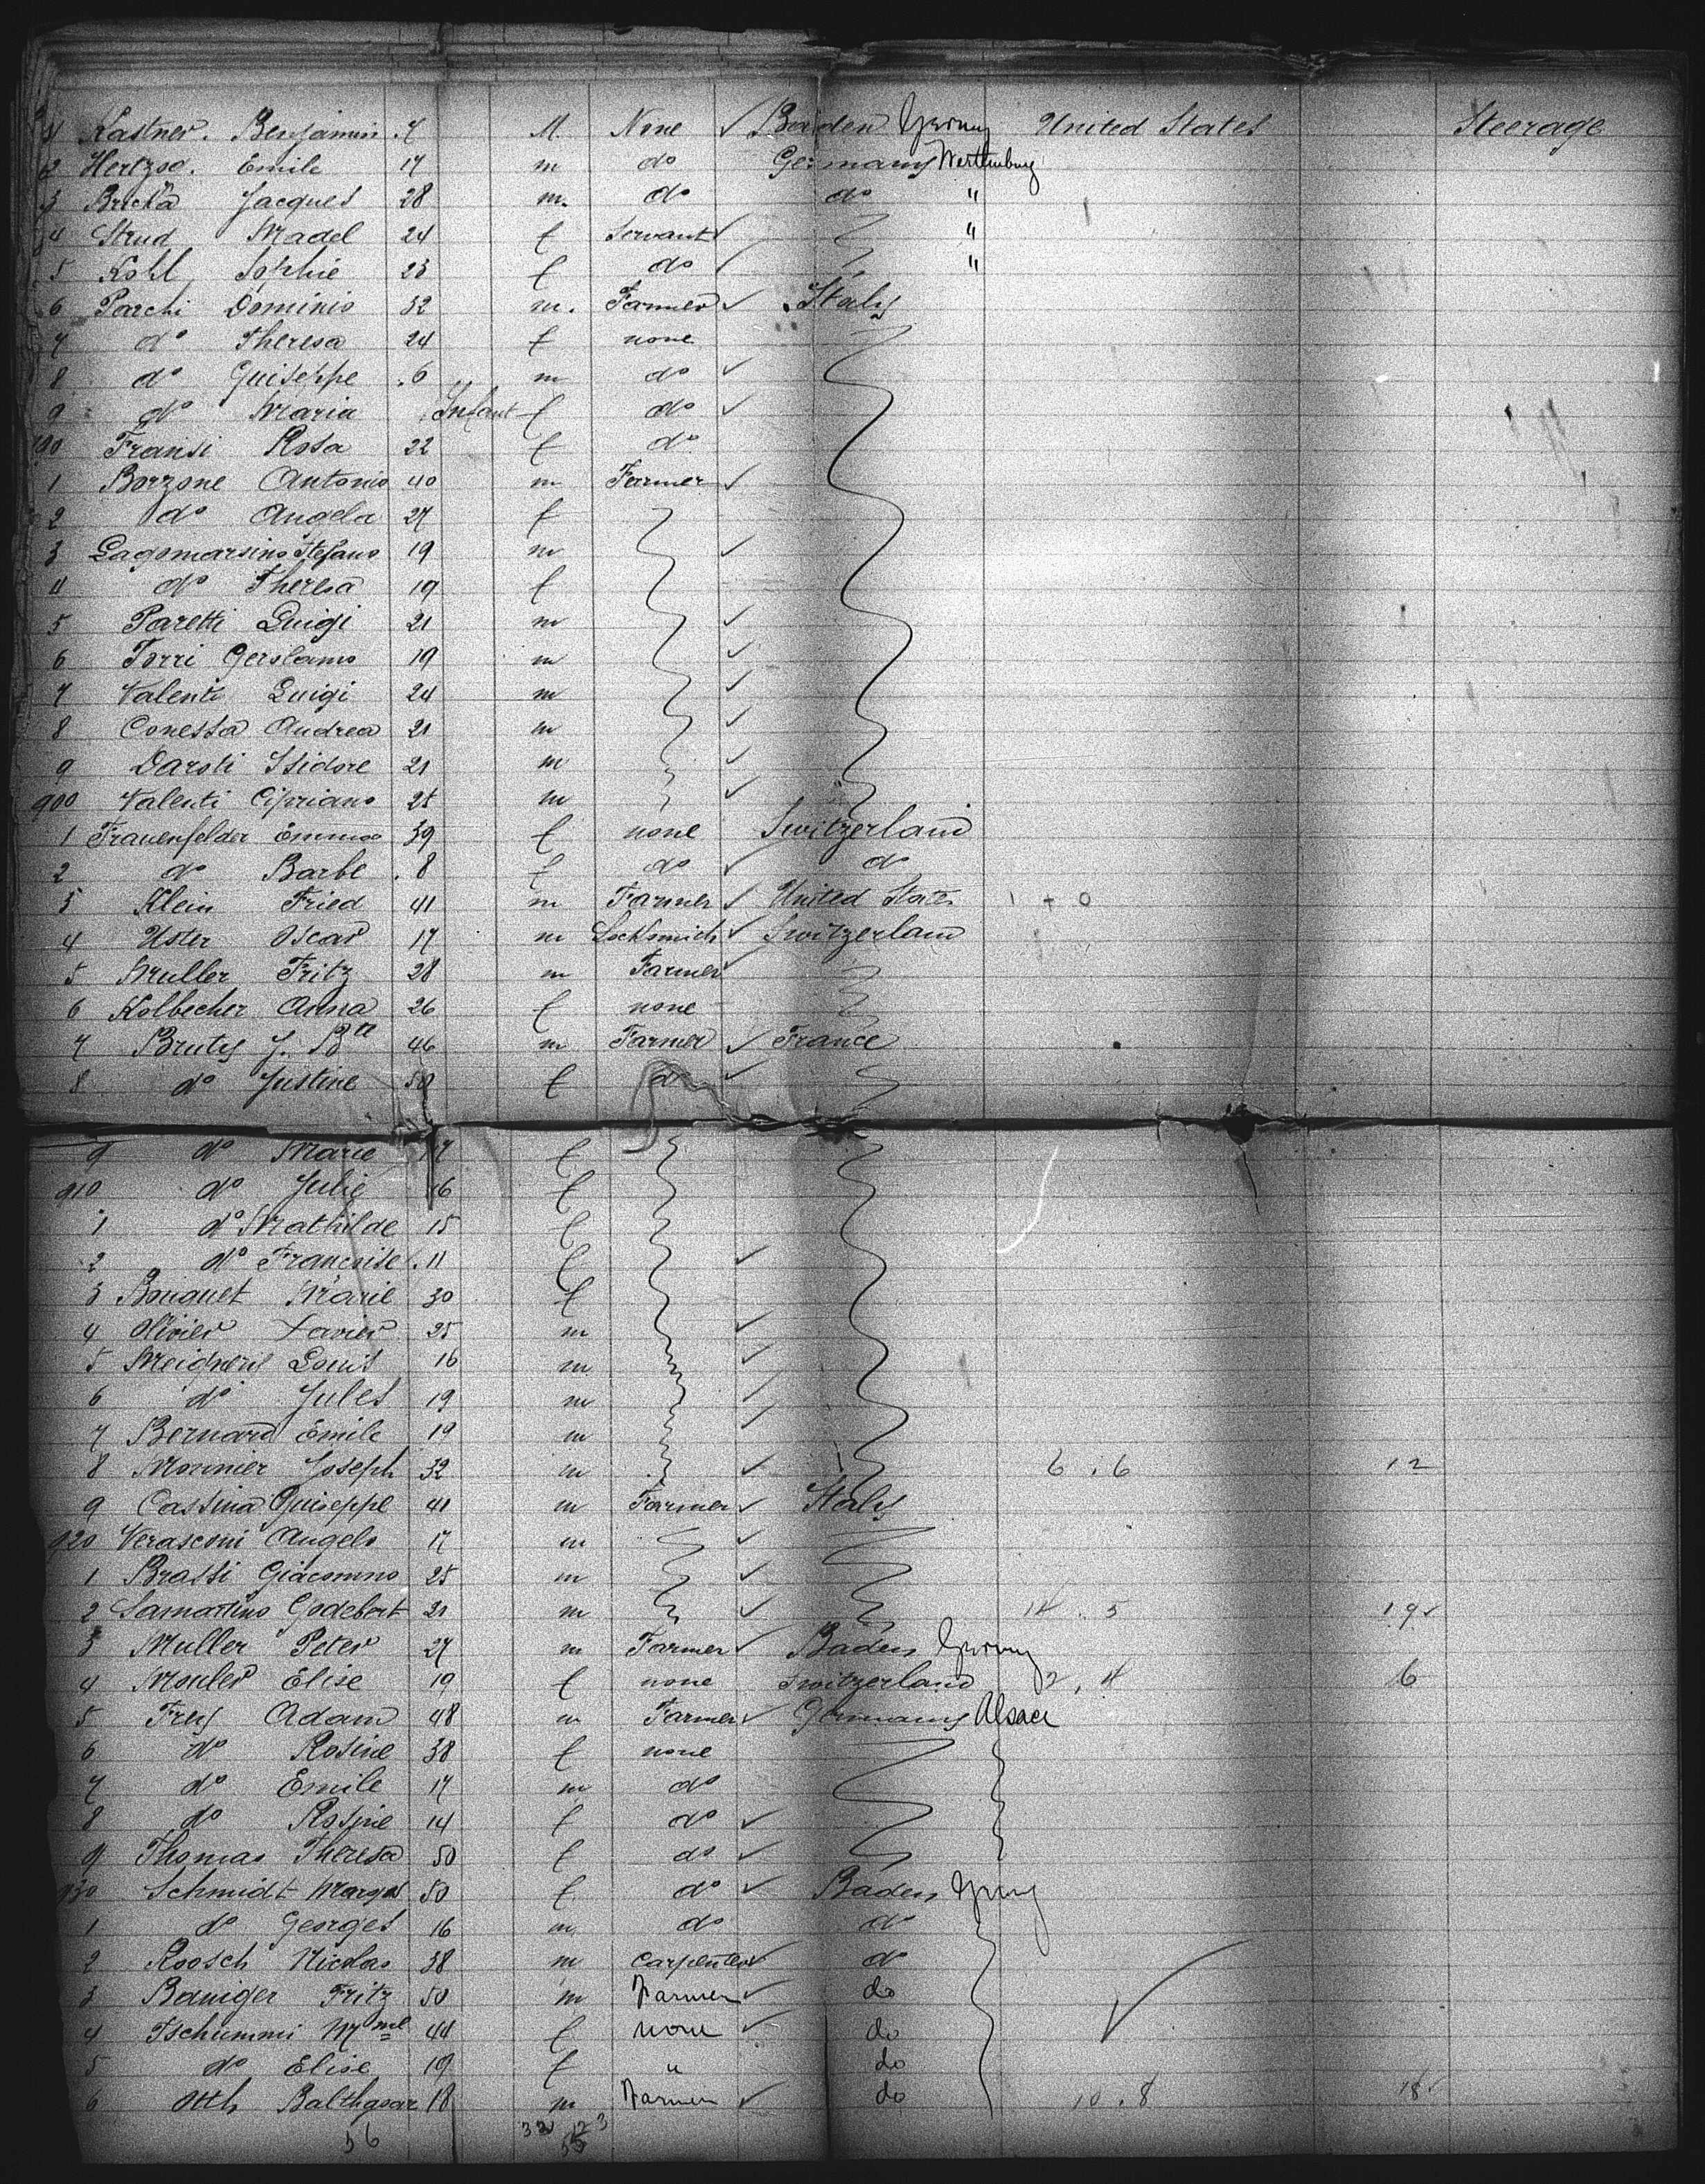 1 Kastner. Benjamin .7 M. None ✓ Baden Germy United States Steerage
2 Hertzog. Emile 17 m do Germany Wurttemburg
3 Bricka Jacques 28 m. do do "
4 Strud Madel 24 f Servant ✓ "
5 Kohl Sophie 23 f do ✓ "
6 Parchi Dominio 32 m. Farmer ✓ Italy
7 do Theresa 24 f none
8 do Guiseppe .6 m do ✓
9 do Maria Infant f do ✓
890 Fransi Rosa 22 f do
1 Borzone Antonio 40 m Farmer ✓
2 do Angela 27 f
3 Lagomarsino Stefano 19 m ✓
4 do Theresa 19 f
5 Paretti Luigi 21 m ✓
6 Torri Gerolamo 19 m ✓
7 Valenti Luigi 24 m ✓
8 Conessa Andrea 21 m ✓
9 Daroti Isidore 21 m ✓
900 Valenti Cipriano 25 m ✓
1 Frauenfelder Emma 39 f none Switzerland
2 do Barbe .8 f do ✓ do
3 Klein Fried 41 m Farmer ✓ United States 1 + 0
4 Uster Oscar 17 m Locksmich ✓ Switzerland
5 Muller Fritz 28 m Farmer ✓
6 Kolbecher Anna 26 f none
7 Bruty J. Bte 46 m Farmer ✓ France
8 do Justine 50 f do ✓
9 do Marie 17 f
910 do Julie 16 f
1 do Mathilde 15 f
2 do Francoise .11 f ✓
3 Bouquet Marie 30 f
4 Olivier Xavier 25 m ✓
5 Louis 16 m ✓
6 do Jules 19 m ✓
7 Bernard Emile 19 m ✓
8 Mounier Joseph 32 m ✓ 6 . 6 12
9 Cassina Guiseppe 41 m Farmer ✓ Italy
920 Verasconi Angelo 17 m ✓
1 Brassi Giacommo 25 m ✓
2 Samartino Godebert 21 m ✓ 14 . 5 19 ✓
3 Muller Peter 27 m Farmer ✓ Baden Germy
4 Mouler Elise 19 f none Switzerland 2 . 4 6
5 Frey Adam 48 m Farmer ✓ Germany Alsace
6 do Rosine 38 f none
7 do Emile 17 m do
8 do Rosine 14 f do ✓
9 Thomas Theresa 50 f do ✓
930 Schmidt Margot 50 f do ✓ Baden Germy
1 do Georges 16 m do do
2 Roosch Nicolas 38 m Carpenter ✓ do
3 Baumiger Fritz 50 m Farmer ✓ do
4 Tschummi Mme 44 f none ✓ do
5 do Elise 19 f " do
6 Otth Balthasar 18 m Farmer ✓ do 10 . 8 18 ✓
56